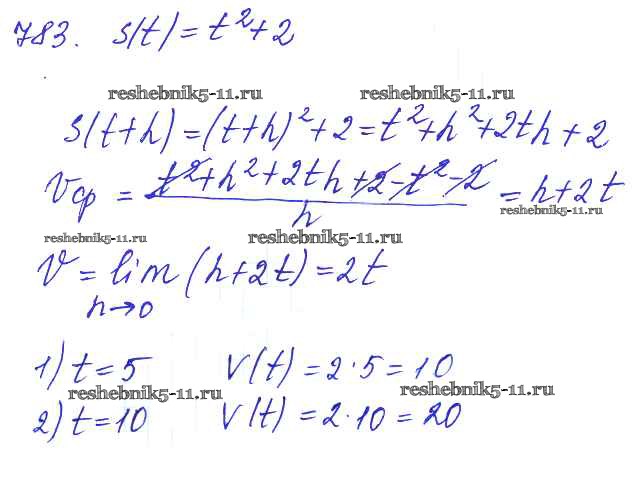 783. s(t) = t² + 2
reshebnik5-11.ru reshebnik5-11.ru
s(t+h) = (t+h)² + 2 = t² + h² + 2th + 2
Vср = (t² + h² + 2th + 2 - t² - 2) / h = h + 2t
reshebnik5-11.ru
reshebnik5-11.ru reshebnik5-11.ru
V = lim (h + 2t) = 2t
h→0
1) t = 5 V(t) = 2·5 = 10
reshebnik5-11.ru reshebnik5-11.ru
2) t = 10 V(t) = 2·10 = 20